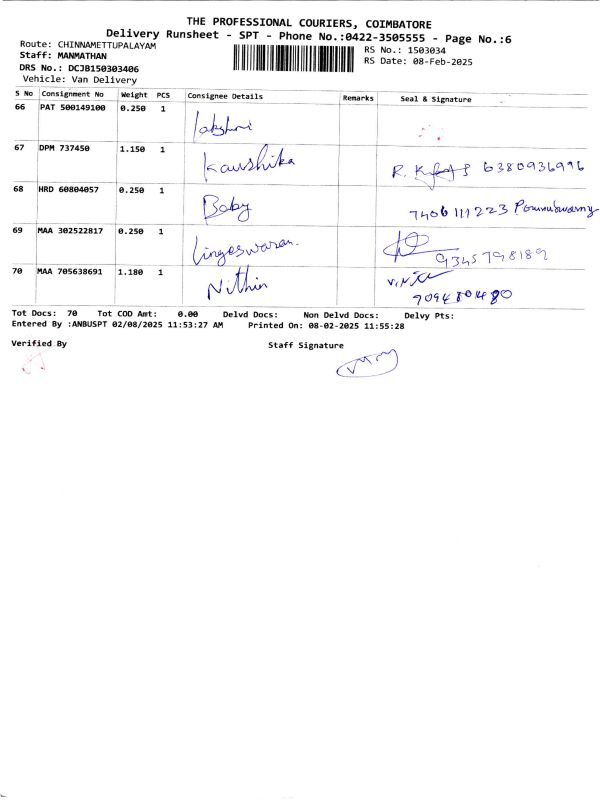 THE PROFESSIONAL COURIERS, COIMBATORE
Delivery Runsheet - SPT - Phone No.:0422-3505555 - Page No.:6
Route: CHINNAMETTUPALAYAM
RS No.: 1503034
Staff: MANMATHAN
RS Date: 08-Feb-2025
DRS No.: DCJB150303406
Vehicle: Van Delivery
S No Consignment No Weight PCS Consignee Details Remarks Seal & Signature
66 PAT 500149100 0.250 1 Lakshmi
67 DPM 737450 1.150 1 Kaushika R. 6380936996
68 HRD 60804057 0.250 1 Baby 7406111223 Ponnuswamy
69 MAA 302522817 0.250 1 Lingeswaran. 9345798189
70 MAA 705638691 1.180 1 Nithin 709480480
Tot Docs: 70 Tot COD Amt: 0.00 Delvd Docs: Non Delvd Docs: Delvy Pts:
Entered By :ANBUSPT 02/08/2025 11:53:27 AM Printed On: 08-02-2025 11:55:28
Verified By Staff Signature